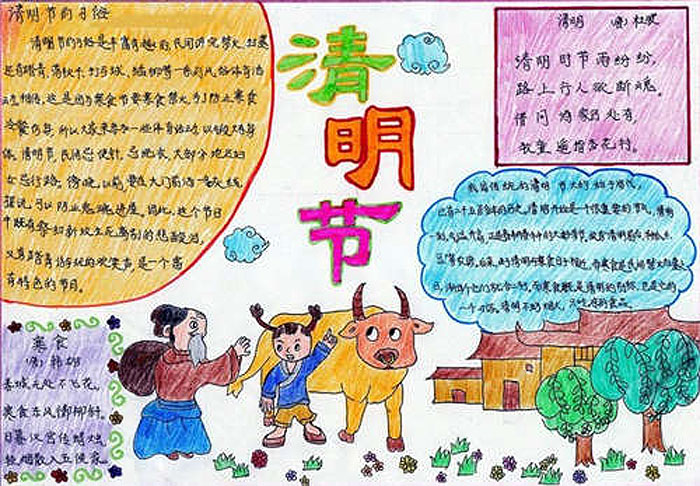 清明节的习俗
清明节的习俗是丰富有趣的,民间讲究禁火、扫墓
还有踏青、荡秋千、打马球、插柳等一系列风俗体育活
动。相传,这是因为寒食节要寒食禁火,为了防止寒食
冷餐伤身,所以大家来参加一些体育活动,以锻炼身
体。清明节,民间忌使针,忌洗衣,大部分地区妇
女忌行路。傍晚以前,要在大门前洒一条灰线,
据说可以防止鬼魂进屋。因此,这个节日
中既有祭扫新坟生死离别的悲酸泪,
又有踏青游玩的欢笑声,是一个富
有特色的节日。
清
明
节
清明 (唐)杜牧
清明时节雨纷纷,
路上行人欲断魂。
借问酒家何处有,
牧童遥指杏花村。
我国传统的清明节大约始于周代,
已有二千五百多年的历史。清明开始是一个很重要的节气,清明
一到,气温升高,正是春耕春种的大好时节,故有清明前后,种瓜点
豆等农谚。后来,由于清明与寒食日子接近,而寒食是民间禁火扫墓
日子,渐渐的它们就合二为一,而寒食既是清明的别称,也是它的
一个习俗。清明不动烟火,只吃凉的食品。
寒食
(唐)韩翃
春城无处不飞花,
寒食东风御柳斜。
日暮汉宫传蜡烛,
轻烟散入五侯家。